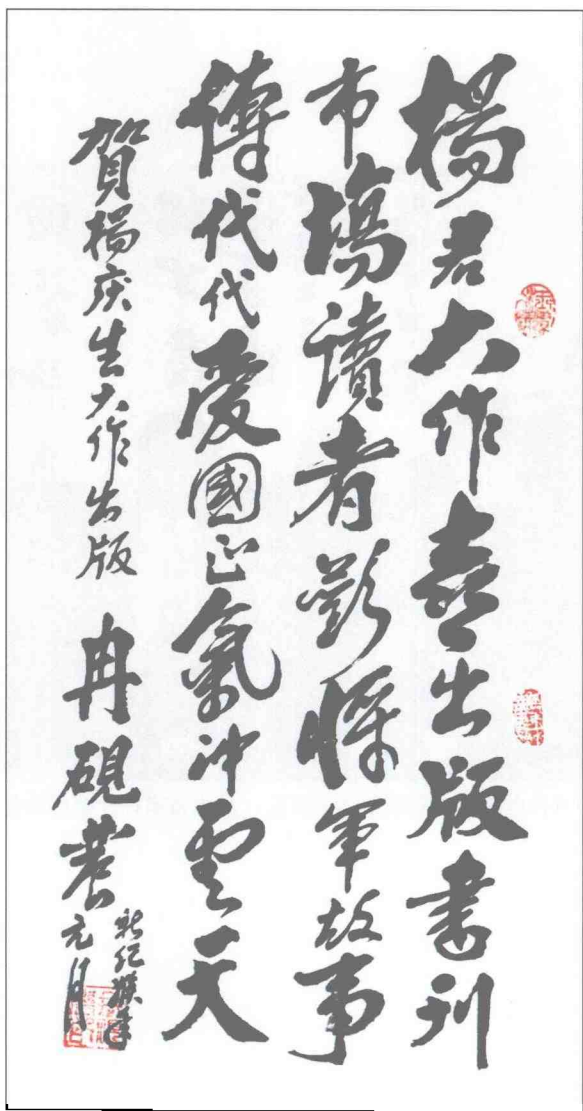 楊君大作喜出版書刊
市場讀者歡將軍故事
傳代代愛國正氣沖雲天
賀楊庆生大作出版 冉硯農
新纪猴年
元月